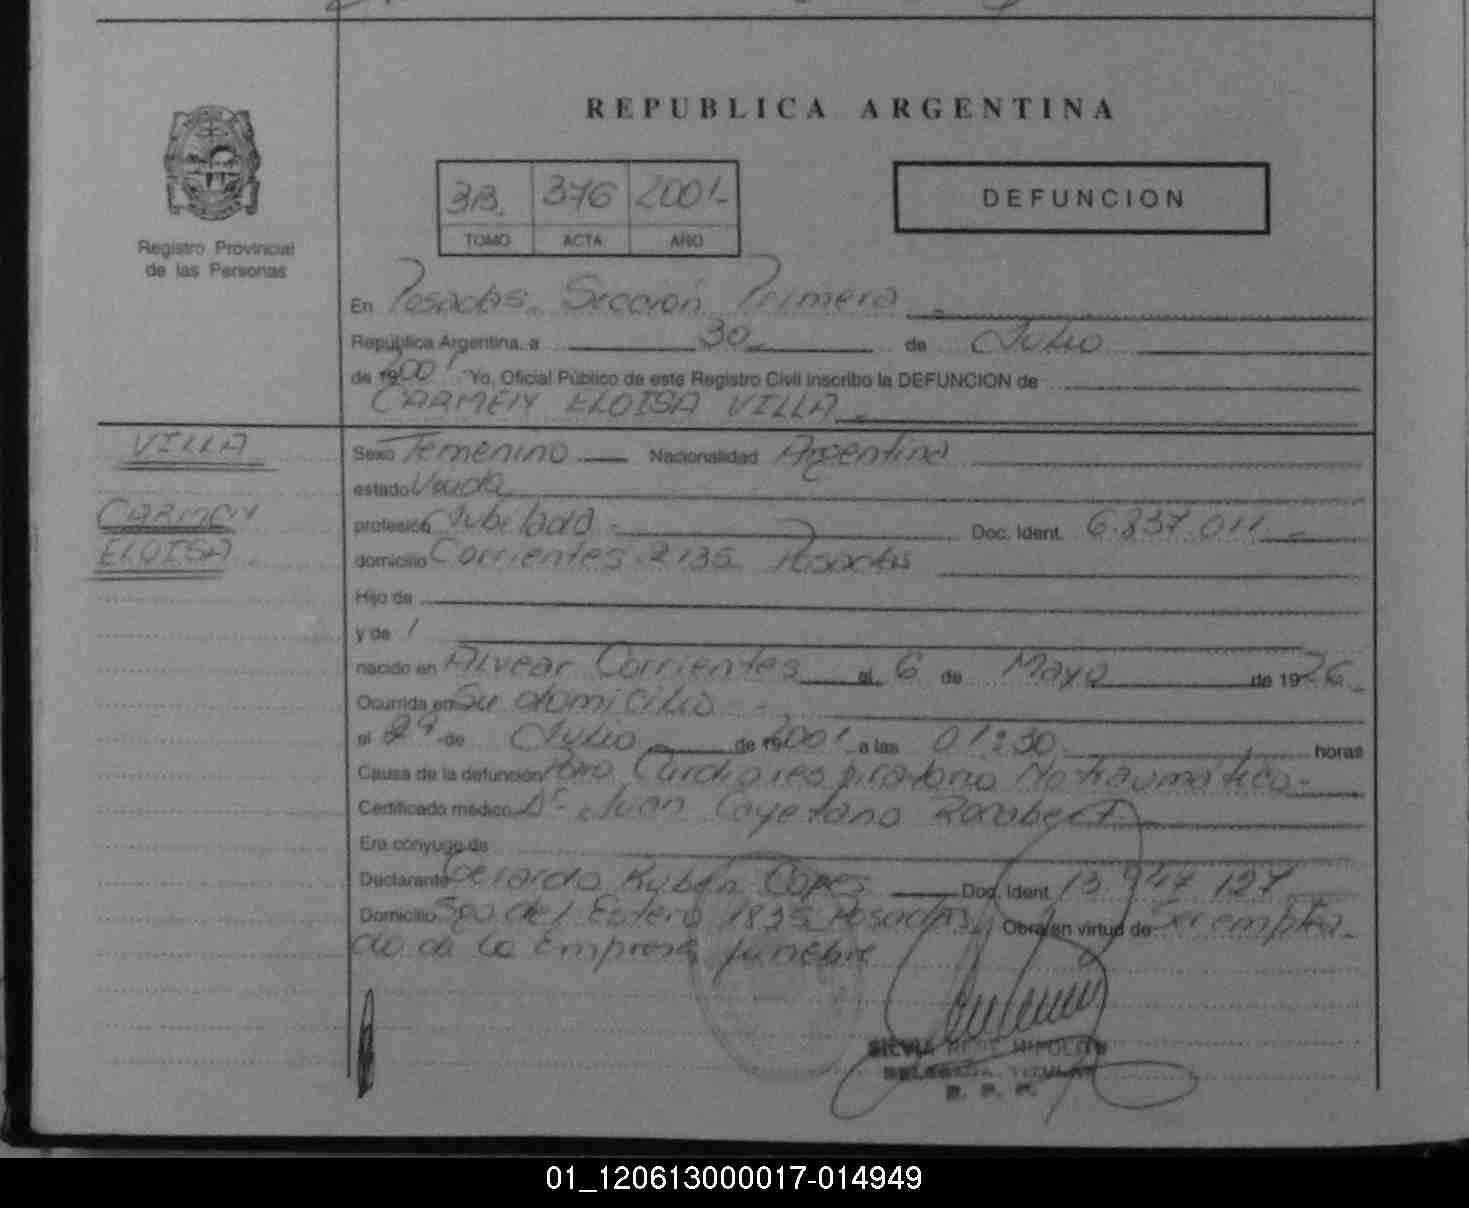 REPUBLICA ARGENTINA
3B. 376 2001-
TOMO ACTA AÑO
DEFUNCION
Registro Provincial
de las Personas
En Posadas. Sección Primera
República Argentina, a 30 de Julio
de 19 001 Yo, Oficial Público de este Registro Civil inscribo la DEFUNCION de
CARMEN ELOISA VILLA
VILLA
CARMEN
ELOISA
Sexo Femenino Nacionalidad Argentina
estado Viuda
profesión Jubilada Doc. Ident. 6.837.011
domicilio Corrientes 2135 Posadas
Hijo de
y de
nacido en Alvear Corrientes el 6 de Mayo de 1926
Ocurrida en Su domicilio
el 29 de Julio de 19 2001 a las 01:30 horas
Causa de la defunción Paro Cardiorespiratorio No traumático-
Certificado médico Dr. Juan Cayetano
Era cónyuge de
Declarante Gerardo Rubén Doc. Ident. 13.947.127
Domicilio Sgo del Estero 1835 Posadas Obra en virtud de
do de la Empresa fúnebre
SILVIA HIPOLITO
DELEGADA TITULAR
R. P. P.
01_120613000017-014949